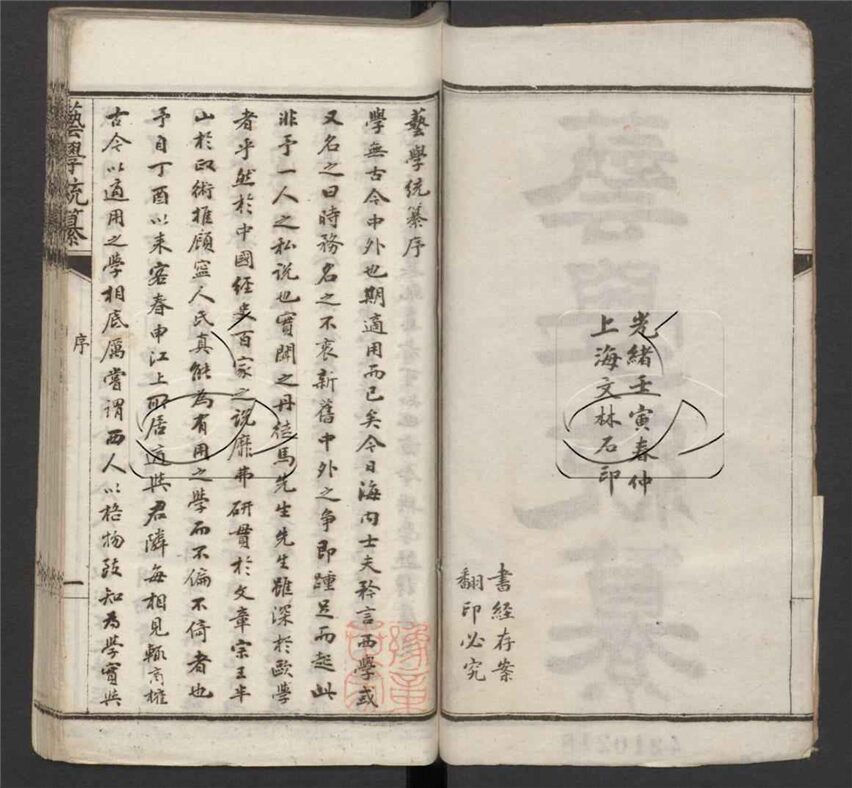 光緒壬寅春仲
上海文林石印
書經存案
翻印必究
藝學統纂序
學無古今中外也期適用而已矣今日海內士夫矜言西學或
又名之曰時務名之不衷新舊中外之争即踵足而起此
非予一人之私説也實聞之丹徒馬先生先生雖深於歐學
者乎然於中國經史百家之説靡弗研貫於文章宗王半
山於政術推顧寧人氏真能為有用之學而不偏不倚者也
予自丁酉以来客春申江上所居適與君隣每相見輒商榷
古今以適用之學相底厲嘗謂西人以格物致知為學實與
藝學統纂
序
一